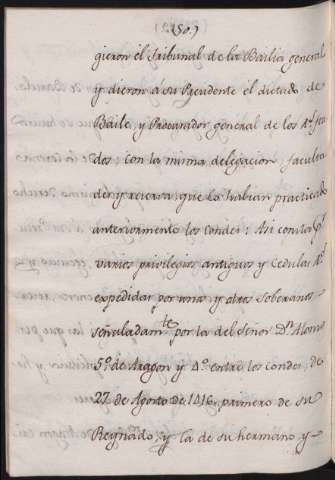 (50.)
gieron el Tribunal de la Bailia general
y dieron á su Presidente el dictado de
Baile, y Procurador general de los R.s feu
dos; con la misma delegacion faculta
des y reserva que lo habian practicado
anteriormente los Condes: Asi consta p.r
varios privilegios antiguos y Cedulas R.s
expedidas por unos y otros Soberanos
señaladam.te por la del Señor D.n Alonso
5.º de Aragon y 4.º entre los Condes, de
27 de Agosto de 1416, primero de su
Reynado, y la de su hermano y